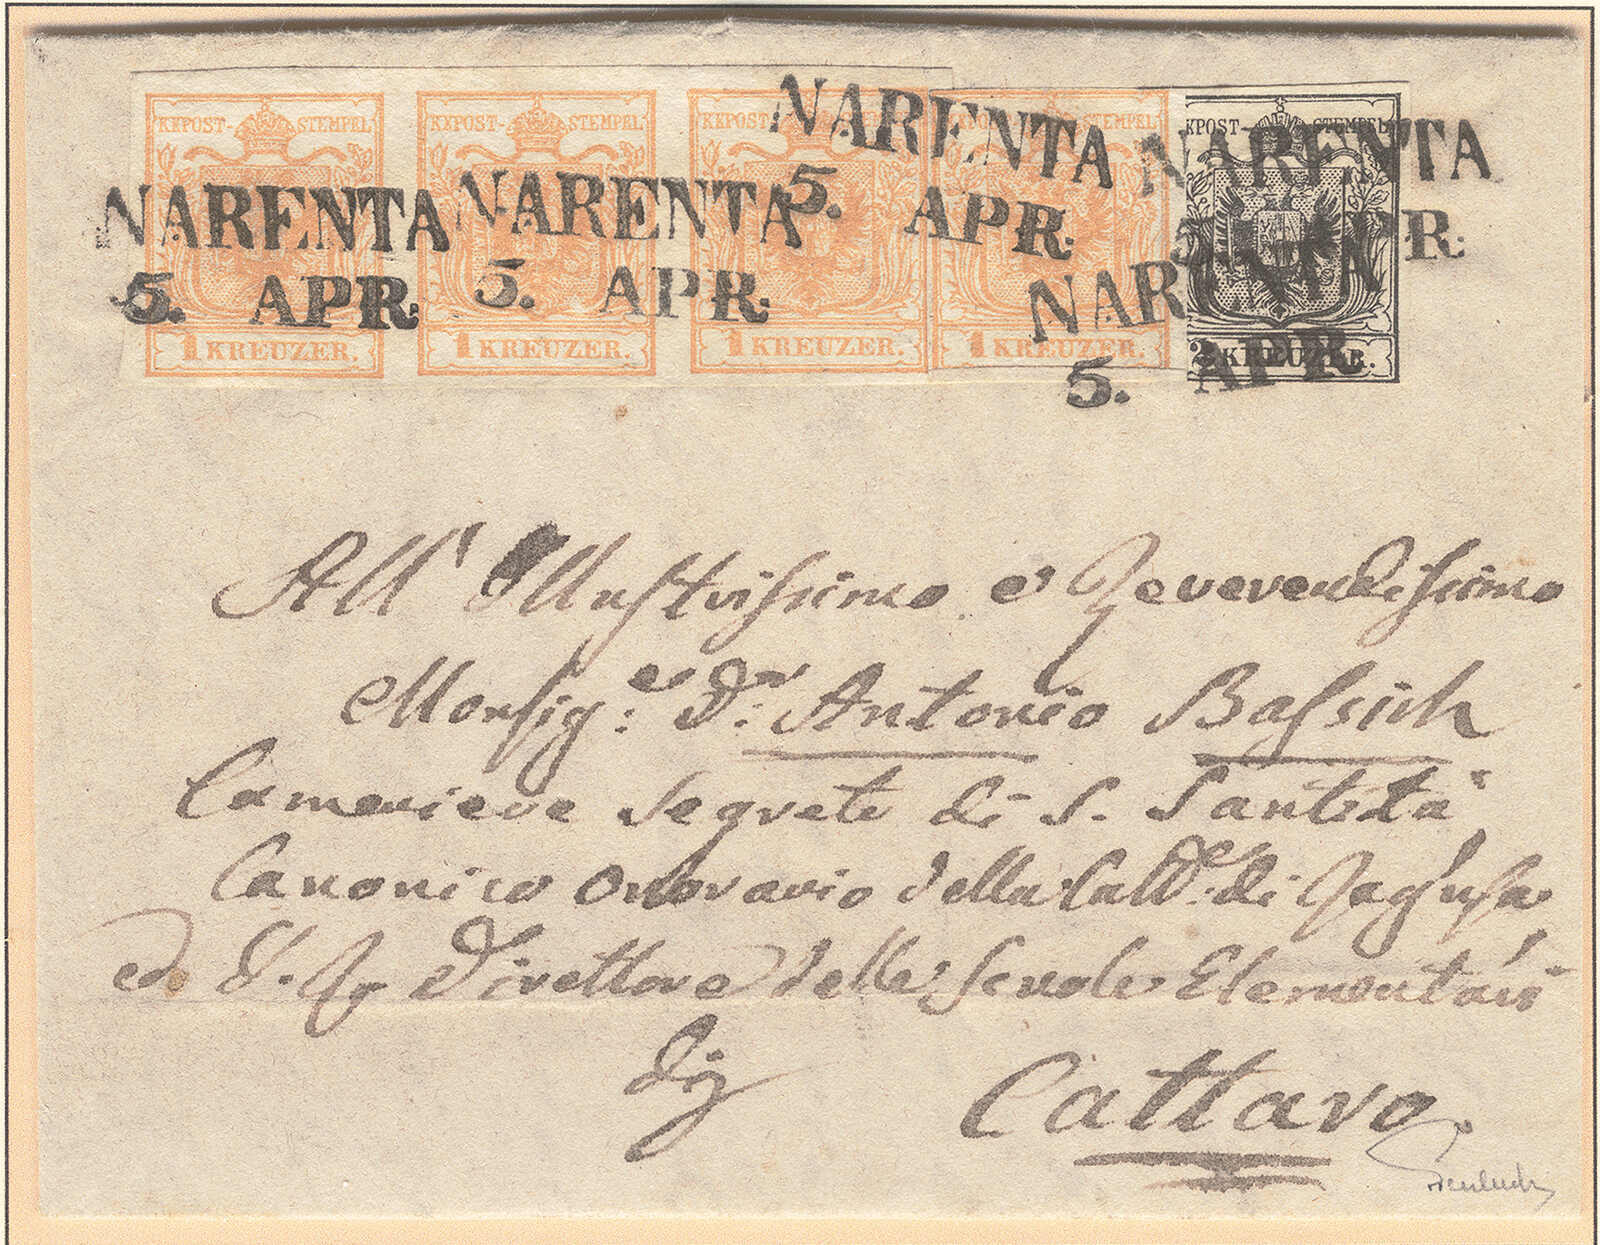 KKPOST-STEMPEL KKPOST-STEMPEL KKPOST-STEMPEL KPOST-STEMPEL
NARENTA NARENTA NARENTA NARENTA
5. APR. 5. APR. 5. APR. 5. APR.
NARENTA
5. APR.
1 KREUZER. 1 KREUZER. 1 KREUZER. 1 KREUZER. 2 KREUZER.
All' Illustrissimo e Reverendissimo
Monsig.e Dn. Antonio Bassich
Cameriere Segreto di S. Santità
Canonico onorario della Catt.e di Ragusa
ed I. R. Direttore delle Scuole Elementari
di
Cattaro.